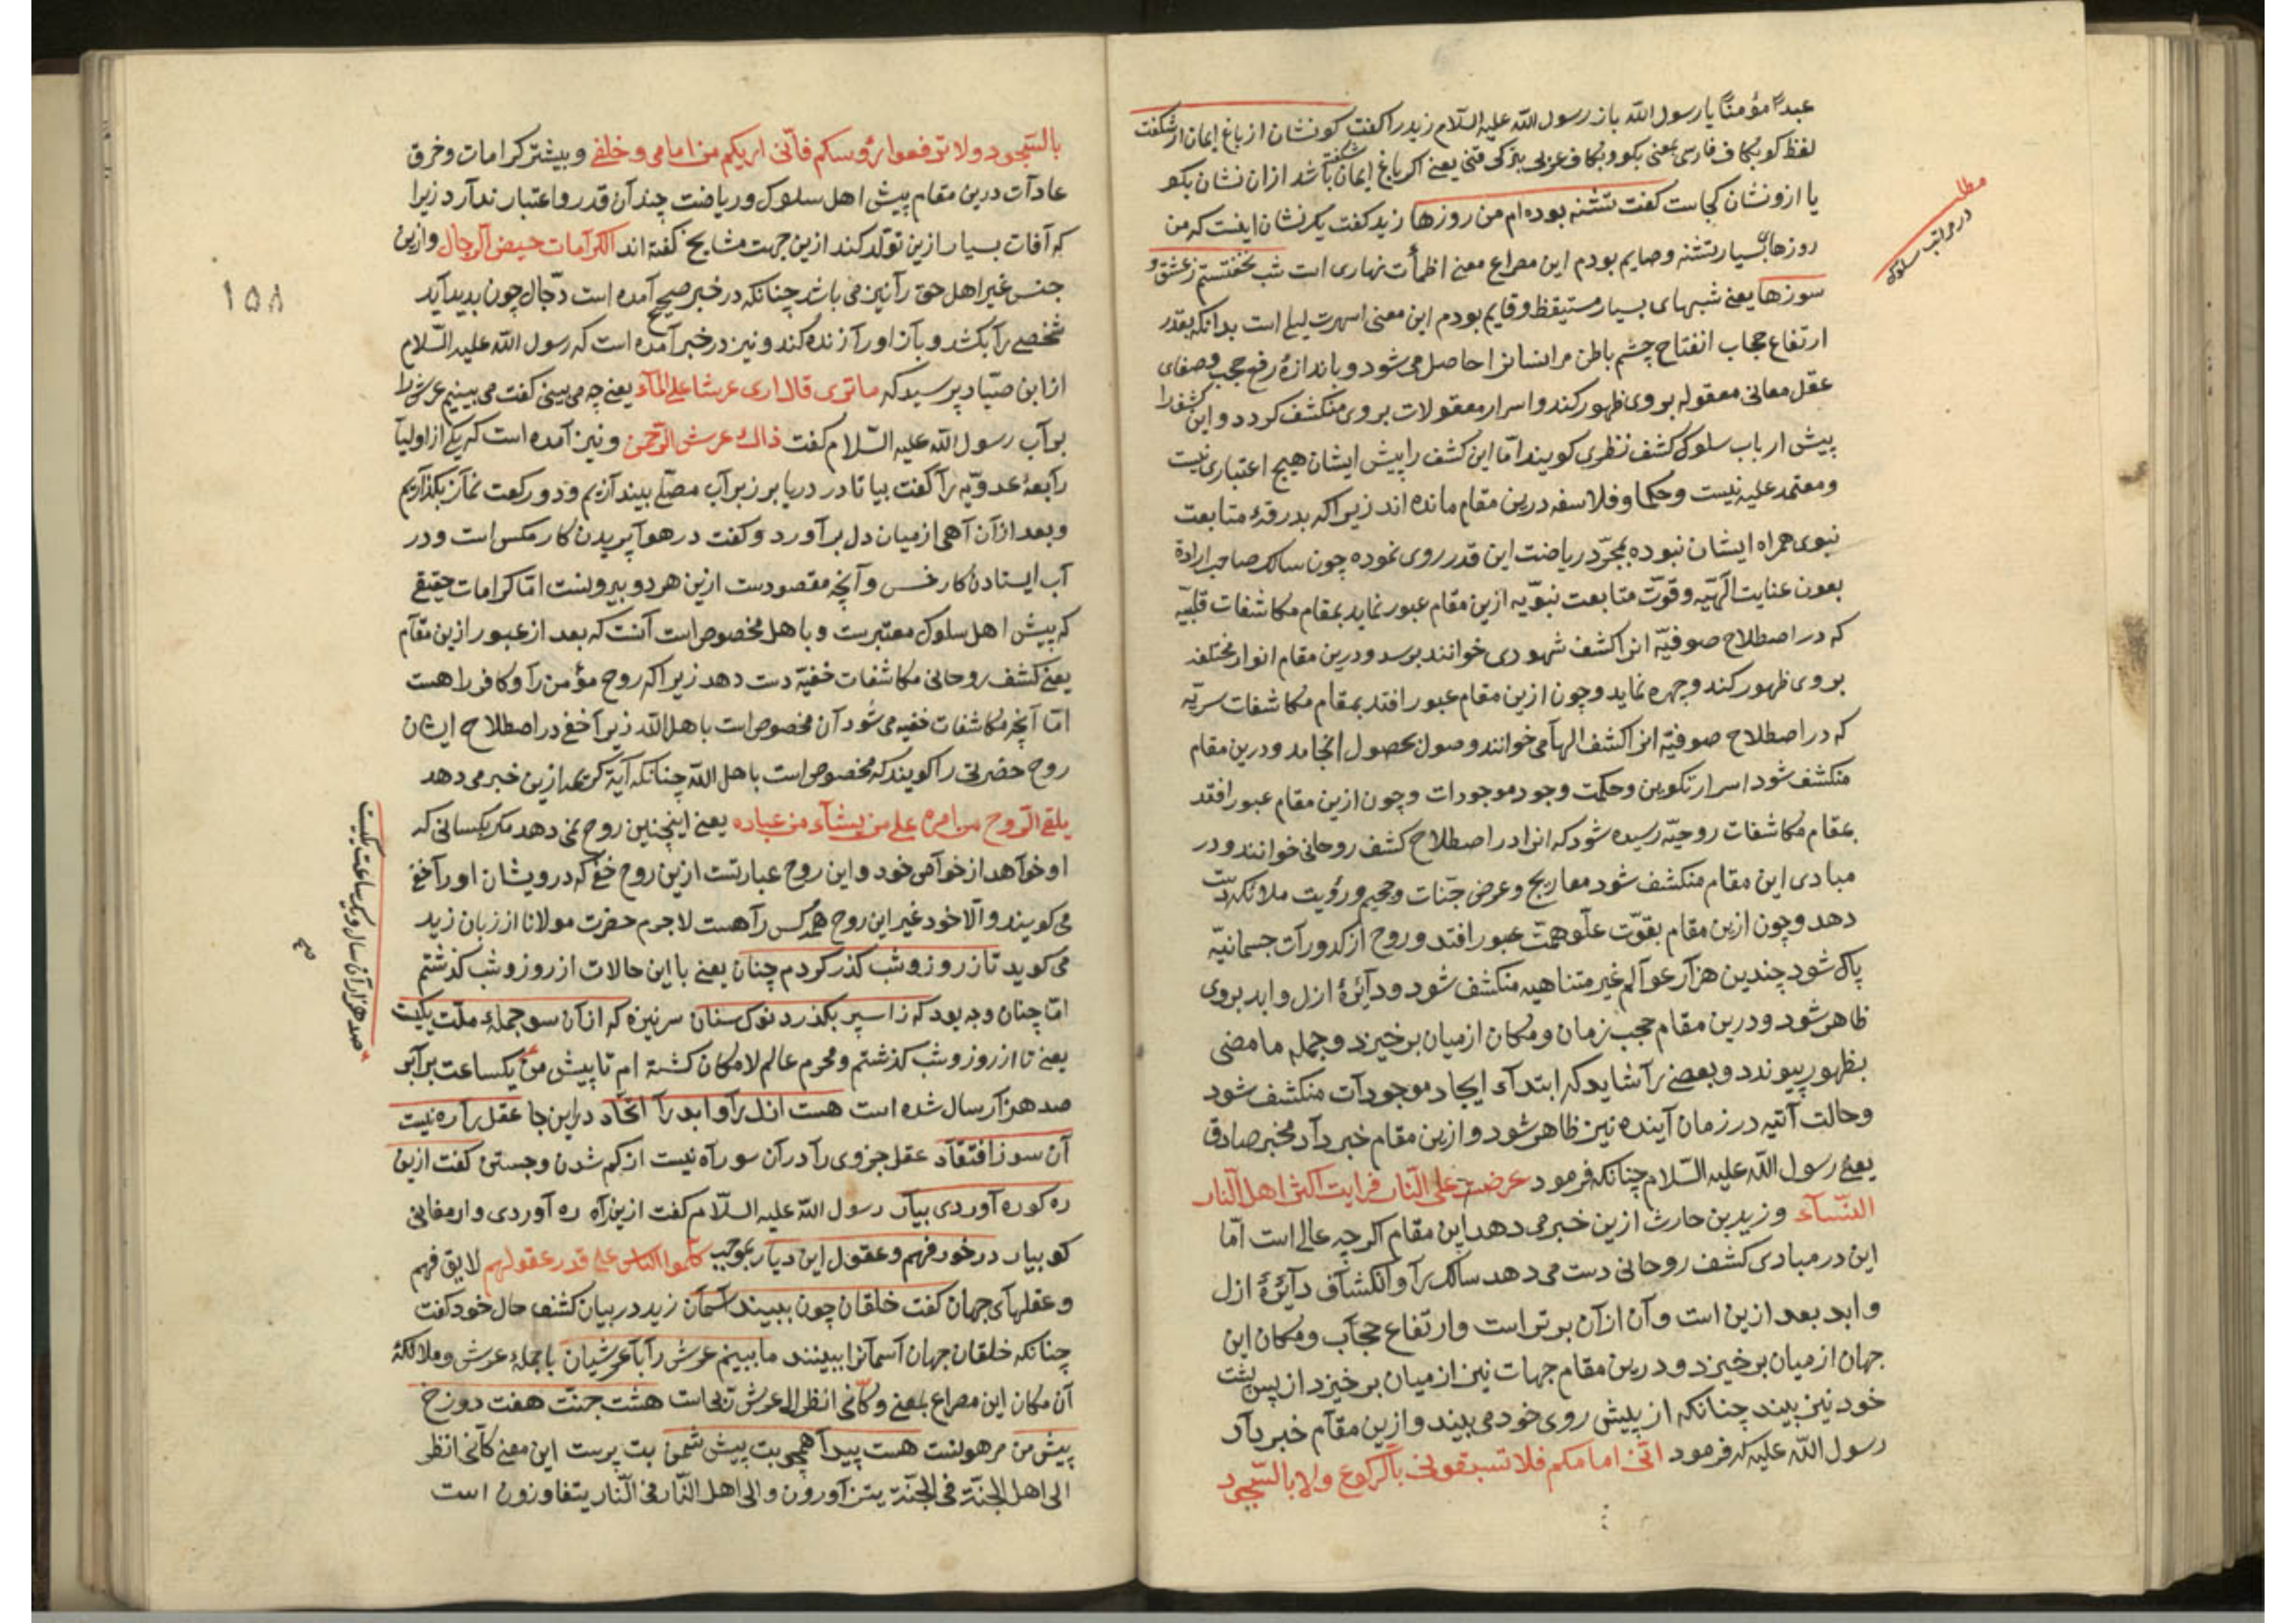 عبداً مؤمناً یا رسول الله باز رسول الله علیه السلام زید را کفت کو نشان از باغ ایمان ار شکفت
لفظ کو بکاف فارسی بمعنی بکو و بکاف عربی بترکی قنی یعنی اکر باغ ایمان شکفته باشد ازان نشان بکو
یا ازو نشان کجاست کفت تشنه بوده ام من روزها زید کفت یک نشان اینست که من
روزهای بسیار تشنه و صایم بودم این مصراع معنی اظمأت نهاری است شب نخفتستم ز عشق و
سوزها یعنی شبهای بسیار مستیقظ و قایم بودم این معنی اسهرت لیلی است بدانکه بقدر
ارتفاع حجاب انفتاح چشم باطن مر انسانرا حاصل می شود و باندازهٔ رفع حجب و صفای
عقل معانی معقوله بر وی ظهور کند و اسرار معقولات بر وی منکشف کردد و این کشف را
پیش ارباب سلوک کشف نظری کویند امّا این کشف را پیش ایشان هیچ اعتباری نیست
و معتمد علیه نیست و حکما و فلاسفه درین مقام مانده اند زیراکه بدرقهٔ متابعت
نبوی همراه ایشان نبوده بمجرّد ریاضت این قدر روی نموده چون سالک صاحب ارادة
بعون عنایت الهیّه و قوّت متابعت نبوّیه ازین مقام عبور نماید بمقام مکاشفات قلبیّه
که در اصطلاح صوفیّه انرا کشف شهودی خوانند برسد و درین مقام انوار مختلفه
بر وی ظهور کند و چهره نماید و چون ازین مقام عبور افتد بمقام مکاشفات سریّه
که در اصطلاح صوفیّه انرا کشف الهامی خوانند وصول بحصول انجامد و درین مقام
منکشف شود اسرار تکوین و حکمت وجود موجودات و چون ازین مقام عبور افتد
بمقام مکاشفات روحیّه رسیده شود که انرا در اصطلاح کشف روحانی خوانند و در
مبادی این مقام منکشف شود معاریج و عرض جنّات و جحیم و رؤیت ملائکه دست
دهد و چون ازین مقام بقوّت علّو همّت عبور افتد و روح از کدورات جسمانیّه
پاک شود چندین هزار عوالم غیر متناهیه منکشف شود و دایرهٔ ازل و ابد بروی
ظاهر شود و درین مقام حجب زمان و مکان از میان برخیزد و جمله ما مضی
بظهور پیوندد و بعضی را شاید که ابتداء ایجاد موجودات منکشف شود
و حالت آتیه در زمان آینده نیز ظاهر شود و ازین مقام خبر داد مخبر صادق
یعنی رسول الله علیه السّلام چنانکه فرمود عرضت علی النّار فرایت اکثر اهل النّار
النّساء و زید بن حارث ازین خبر می دهد این مقام اکرچه عالی است امّا
این در مبادی کشف روحانی دست می دهد سالک را و انکشاف دایرهٔ ازل
و ابد بعد ازین است و آن ازان برتر است و ارتفاع حجاب و مکان این
جهان از میان برخیزد و درین مقام جهات نیز از میان برخیزد از پس پشت
خود نیز بیند چنانکه از پیش روی خود می بیند و ازین مقام خبر داد
رسول الله علیه که فرمود انّی امامکم فلا تسبقونی بالرّکوع ولا بالسّجود
مطلب
در مراتب سلوک
بالسّجود ولا ترفعوا رؤسکم فانّی اریکم من امامی و خلفی و بیشتر کرامات و خرق
عادات درین مقام پیش اهل سلوک و ریاضت چندان قدر و اعتبار ندارد زیرا
که آفات بسیار ازین تولّد کند ازین جهت مشایخ کفته اند الکرامات حیض الرّجال و ازین
جنس غیر اهل حق را نیز می باشد چنانکه در خبر صحیح آمده است دجّال چون پدید آید
شخصی را بکشد و باز او را زنده کند و نیز در خبر آمده است که رسول الله علیه السّلام
از ابن صیّاد پرسید که ما تری قال اری عرشا علی الماء یعنی چه می بینی کفت می بینم عرش را
بر آب رسول الله علیه السّلام کفت ذاک عرش الرّحمن و نیز آمده است که یکی از اولیا
رابعهٔ عدویّه را کفت بیا تا در دریا بر زبر آب مصلّی بیندازیم و دو رکعت نماز بکذاریم
و بعد ازان آهی از میان دل برآورد و کفت در هوا پریدن کار مکس است و در
آب ایستادن کار خس و آنچه مقصودست ازین هر دو بیرونست امّا کرامات حقیقی
که پیش اهل سلوک معتبرست و باهل مخصوص است آنست که بعد از عبور ازین مقام
یعنی کشف روحانی مکاشفات خفیّه دست دهد زیراکه روح مؤمن را و کافر را هست
امّا آنچه مکاشفات خفیه می شود آن مخصوص است باهل الله زیرا خفی در اصطلاح ایشان
روح حضرتی را کویند که مخصوص است باهل الله چنانکه آیة کریمه ازین خبر می دهد
یلقی الرّوح من امره علی من یشاء من عباده یعنی اینچنین روح نمی دهد مکر بکسانی که
او خواهد از خواص خود و این روح عبارتست ازین روح خفی که درویشان او را خفی
می کویند و الّا خود غیر این روح همه کس را هست لاجرم حضرت مولانا از زبان زید
می کوید تا ز روز و شب کذر کردم چنان یعنی با این حالات از روز و شب کذشتم
امّا چنان وجه بود که ز اسپر بکذرد نوک سنان سر نیزه که ازان سو جملهٔ ملّت یکیست
یعنی تا از روز و شب کذشتم و محرم عالم لامکان کشته ام تا پیش من یکساعت برابر
صد هزار سال شده است هست ازل را و ابد را اتّحاد در این جا عقل را ره نیست
آن سو ز افتقاد عقل جزوی را در آن سو راه نیست از کم شدن و جستن کفت ازین
ره کو ره آوردی بیار رسول الله علیه السّلام کفت ازین راه ره آوردی و ارمغانی
کو بیار در خور فهم و عقول این دیار بموجب کلّموا الناس علی قدر عقولهم لایق فهم
و عقلهای جهان کفت خلقان چون ببینند آسمان زید در بیان کشف حال خود کفت
چنانکه خلقان جهان آسمانرا ببینند ما ببینم عرش را با عرشیان با جملهٔ عرش و ملائکهٔ
آن مکان این مصراع بمعنی و کانّی انظر الی عرش ربّی است هشت جنّت هفت دوزخ
پیش من مرهونست هست پیدا همچو بت پیش شمن بت پرست این معنی کانّی انظر
الی اهل الجنّة فی الجنّة یتزاورون و الی اهل النّار فی النّار یتعاوون است
صد هزاران سال و یکساعت یکیست
صح
۱۵۸